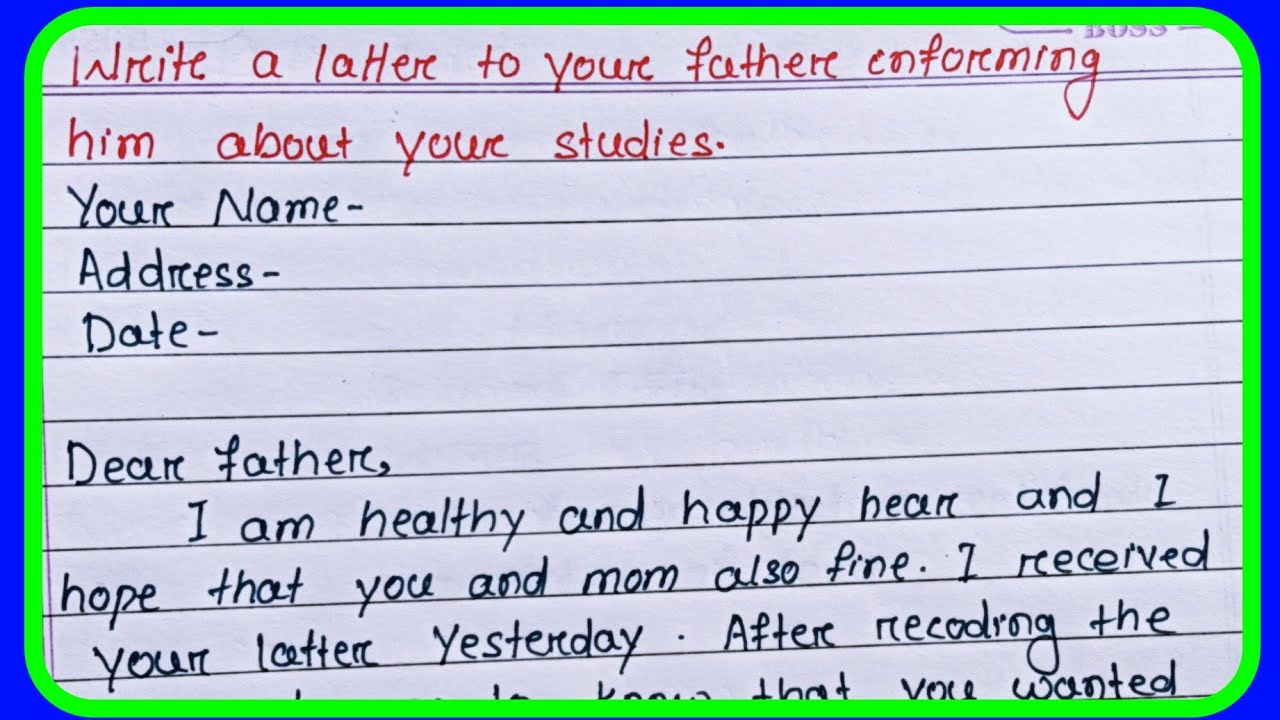 BOSS
Write a latter to your father enforming
him about your studies.
Your Name-
Address-
Date-
Dear father,
I am healthy and happy hear and I
hope that you and mom also fine. I received
your latter yesterday. After reading the
know that you wanted